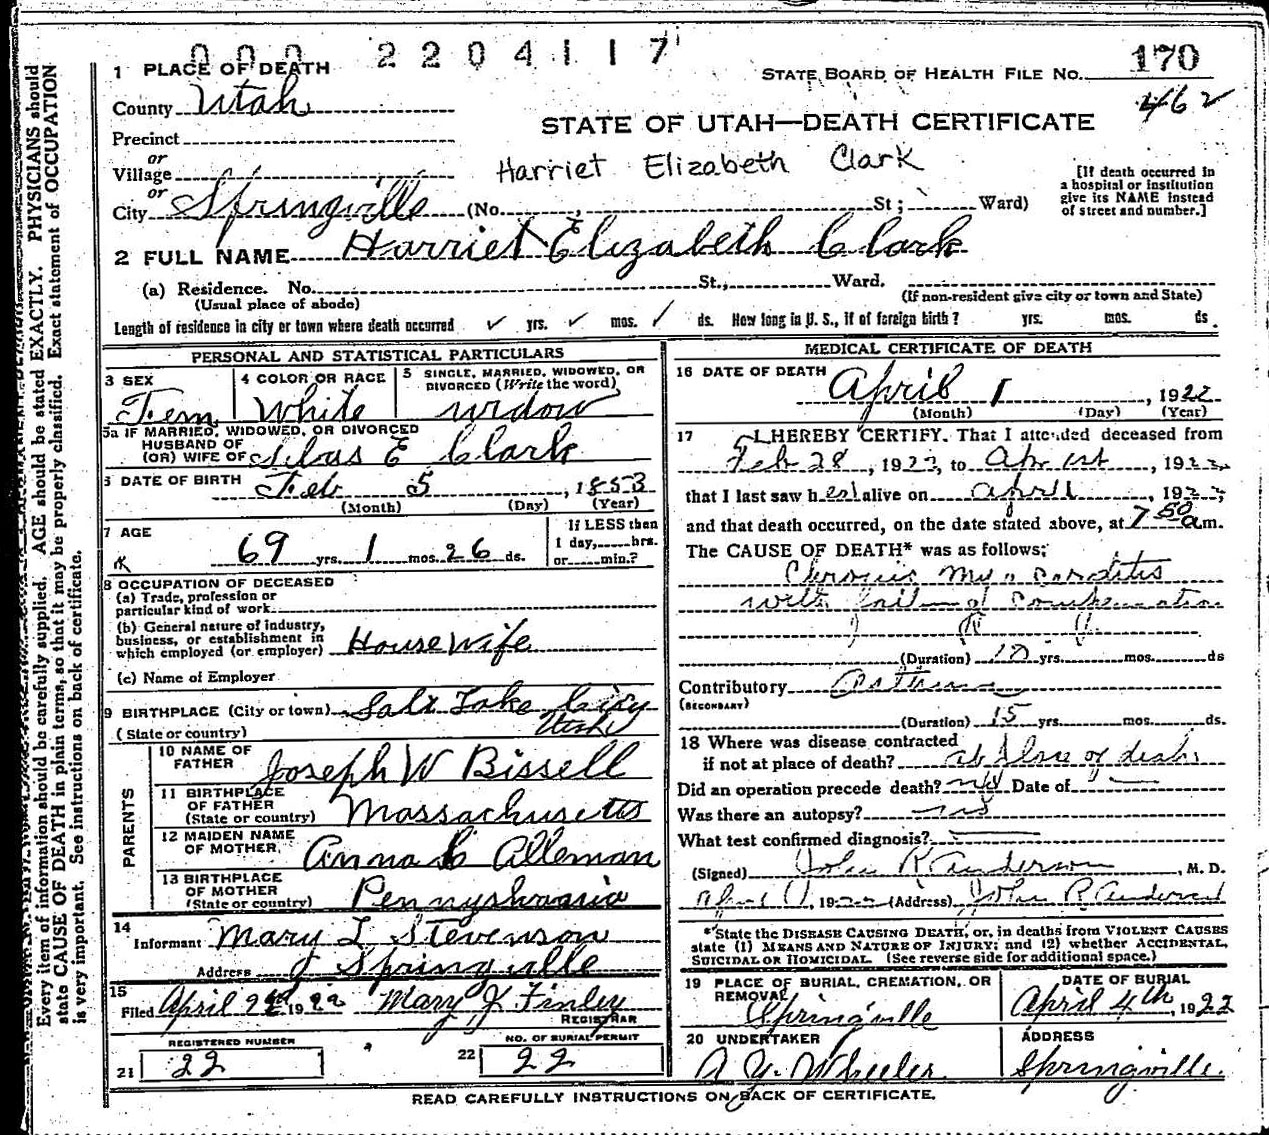 000 2204117
STATE BOARD OF HEALTH FILE No. 170
462
1 PLACE OF DEATH
County Utah
STATE OF UTAH—DEATH CERTIFICATE
Precinct
or
Village
Harriet Elizabeth Clark
or
City Springville (No. St; Ward)
[If death occurred in
a hospital or institution
give its NAME instead
of street and number.]
2 FULL NAME Harriet Elizabeth Clark
(a) Residence. No. St., Ward.
(Usual place of abode)
(If non-resident give city or town and State)
Length of residence in city or town where death occurred yrs. mos. ds. How long in U. S., if of foreign birth? yrs. mos. ds.
PERSONAL AND STATISTICAL PARTICULARS
3 SEX
Fem
4 COLOR OR RACE
White
5 SINGLE, MARRIED, WIDOWED, OR
DIVORCED (Write the word)
widow
5a IF MARRIED, WIDOWED, OR DIVORCED
HUSBAND OF
(OR) WIFE OF Silas E Clark
6 DATE OF BIRTH Feb 5, 1853
(Month) (Day) (Year)
7 AGE
69 yrs. 1 mos. 26 ds.
If LESS then
1 day, hrs.
or min.?
8 OCCUPATION OF DECEASED
(a) Trade, profession or
particular kind of work
(b) General nature of industry,
business, or establishment in
which employed (or employer) House Wife
(c) Name of Employer
9 BIRTHPLACE (City or town) Salt Lake City
(State or country) Utah
PARENTS
10 NAME OF
FATHER Joseph W Bissell
11 BIRTHPLACE
OF FATHER
(State or country) Massachusetts
12 MAIDEN NAME
OF MOTHER Anna C Alleman
13 BIRTHPLACE
OF MOTHER
(State or country) Pennyslvania
14
Informant Mary L Stevenson
Address Springville
15
Filed April 2nd 1922 Mary J Finley
REGISTRAR
REGISTERED NUMBER
21 22
NO. OF BURIAL PERMIT
22 22
MEDICAL CERTIFICATE OF DEATH
16 DATE OF DEATH
April 1, 1922
(Month) (Day) (Year)
17 I HEREBY CERTIFY. That I attended deceased from
Feb 28, 1922, to Apr 1st, 1922
that I last saw her alive on April 1, 1922;
and that death occurred, on the date stated above, at 7 50 a m.
The CAUSE OF DEATH* was as follows;
Chronic Myocarditis
with failure of compensation
(Duration) 10 yrs. mos. ds
Contributory Asthma
(SECONDARY)
(Duration) 15 yrs. mos. ds.
18 Where was disease contracted
if not at place of death? at place of death
Did an operation precede death? no Date of
Was there an autopsy? no
What test confirmed diagnosis?
(Signed) John R Anderson, M. D.
April 1, 1922 (Address) John R Anderson
*State the DISEASE CAUSING DEATH, or, in deaths from VIOLENT CAUSES
state (1) MEANS AND NATURE OF INJURY; and (2) whether ACCIDENTAL,
SUICIDAL OR HOMICIDAL. (See reverse side for additional space.)
19 PLACE OF BURIAL, CREMATION, OR
REMOVAL
Springville
DATE OF BURIAL
April 4th, 1922
20 UNDERTAKER
A. Y. Wheeler
ADDRESS
Springville.
READ CAREFULLY INSTRUCTIONS ON BACK OF CERTIFICATE.
Every item of information should be carefully supplied. AGE should be stated EXACTLY. PHYSICIANS should
state CAUSE OF DEATH in plain terms, so that it may be properly classified. Exact statement of OCCUPATION
is very important. See instructions on back of certificate.